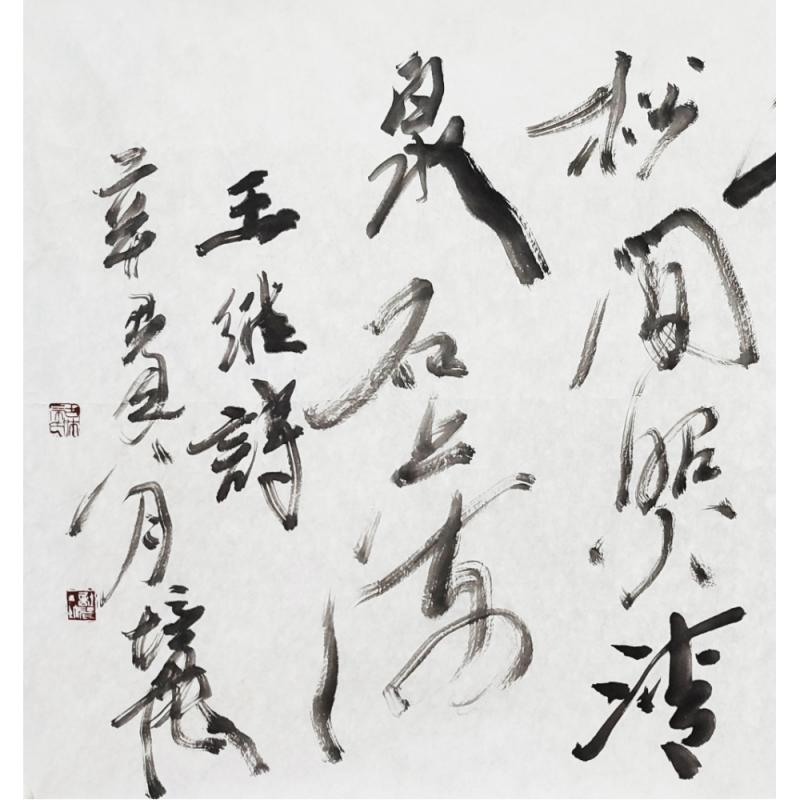 松间照清
泉石上流
王維詩
辛丑八月